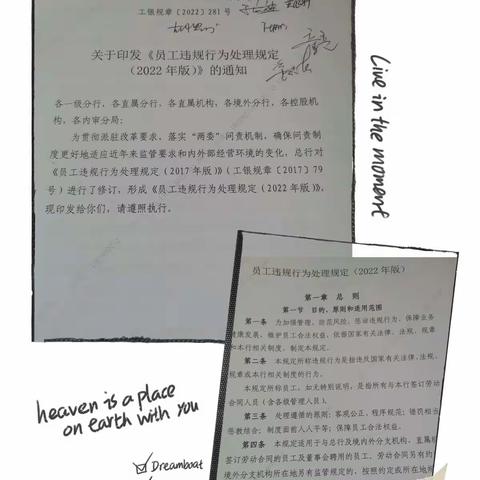 工银规章〔2022〕281号
关于印发《员工违规行为处理规定
（2022年版）》的通知
各一级分行，各直属分行，各直属机构，各境外分行，各控股机
构，各内审分局：
为贯彻派驻改革要求、落实“两委”问责机制，确保问责制
度更好地适应近年来监管要求和内外部经营环境的变化，总行对
《员工违规行为处理规定（2017年版）》（工银规章〔2017〕79
号）进行了修订，形成《员工违规行为处理规定（2022年版）》，
现印发给你们，请遵照执行。
Live in the moment
员工违规行为处理规定（2022年版）
第一章 总 则
第一节 目的、原则和适用范围
第一条 为加强管理，防范风险，惩治违规行为，保障业务
健康发展，维护员工合法权益，依据国家有关法律、法规、规章
和本行相关制度，制定本规定。
第二条 本规定所称违规行为是指违反国家有关法律、法规、
规章或本行相关制度的行为。
本规定所称员工，如无特别说明，是指所有与本行签订劳动
合同人员（含各级管理人员）。
第三条 处理遵循的原则：客观公正，程序规范；错罚相当
惩教结合；制度面前人人平等；保障员工合法权益。
第四条 本规定适用于与总行及境内外分支机构、直属机
签订劳动合同的员工及董事会聘用的员工，劳动合同另有约
境外分支机构所在地另有监管规定的，按照约定或所在地
heaven is a place
on earth with you
Dreamboat